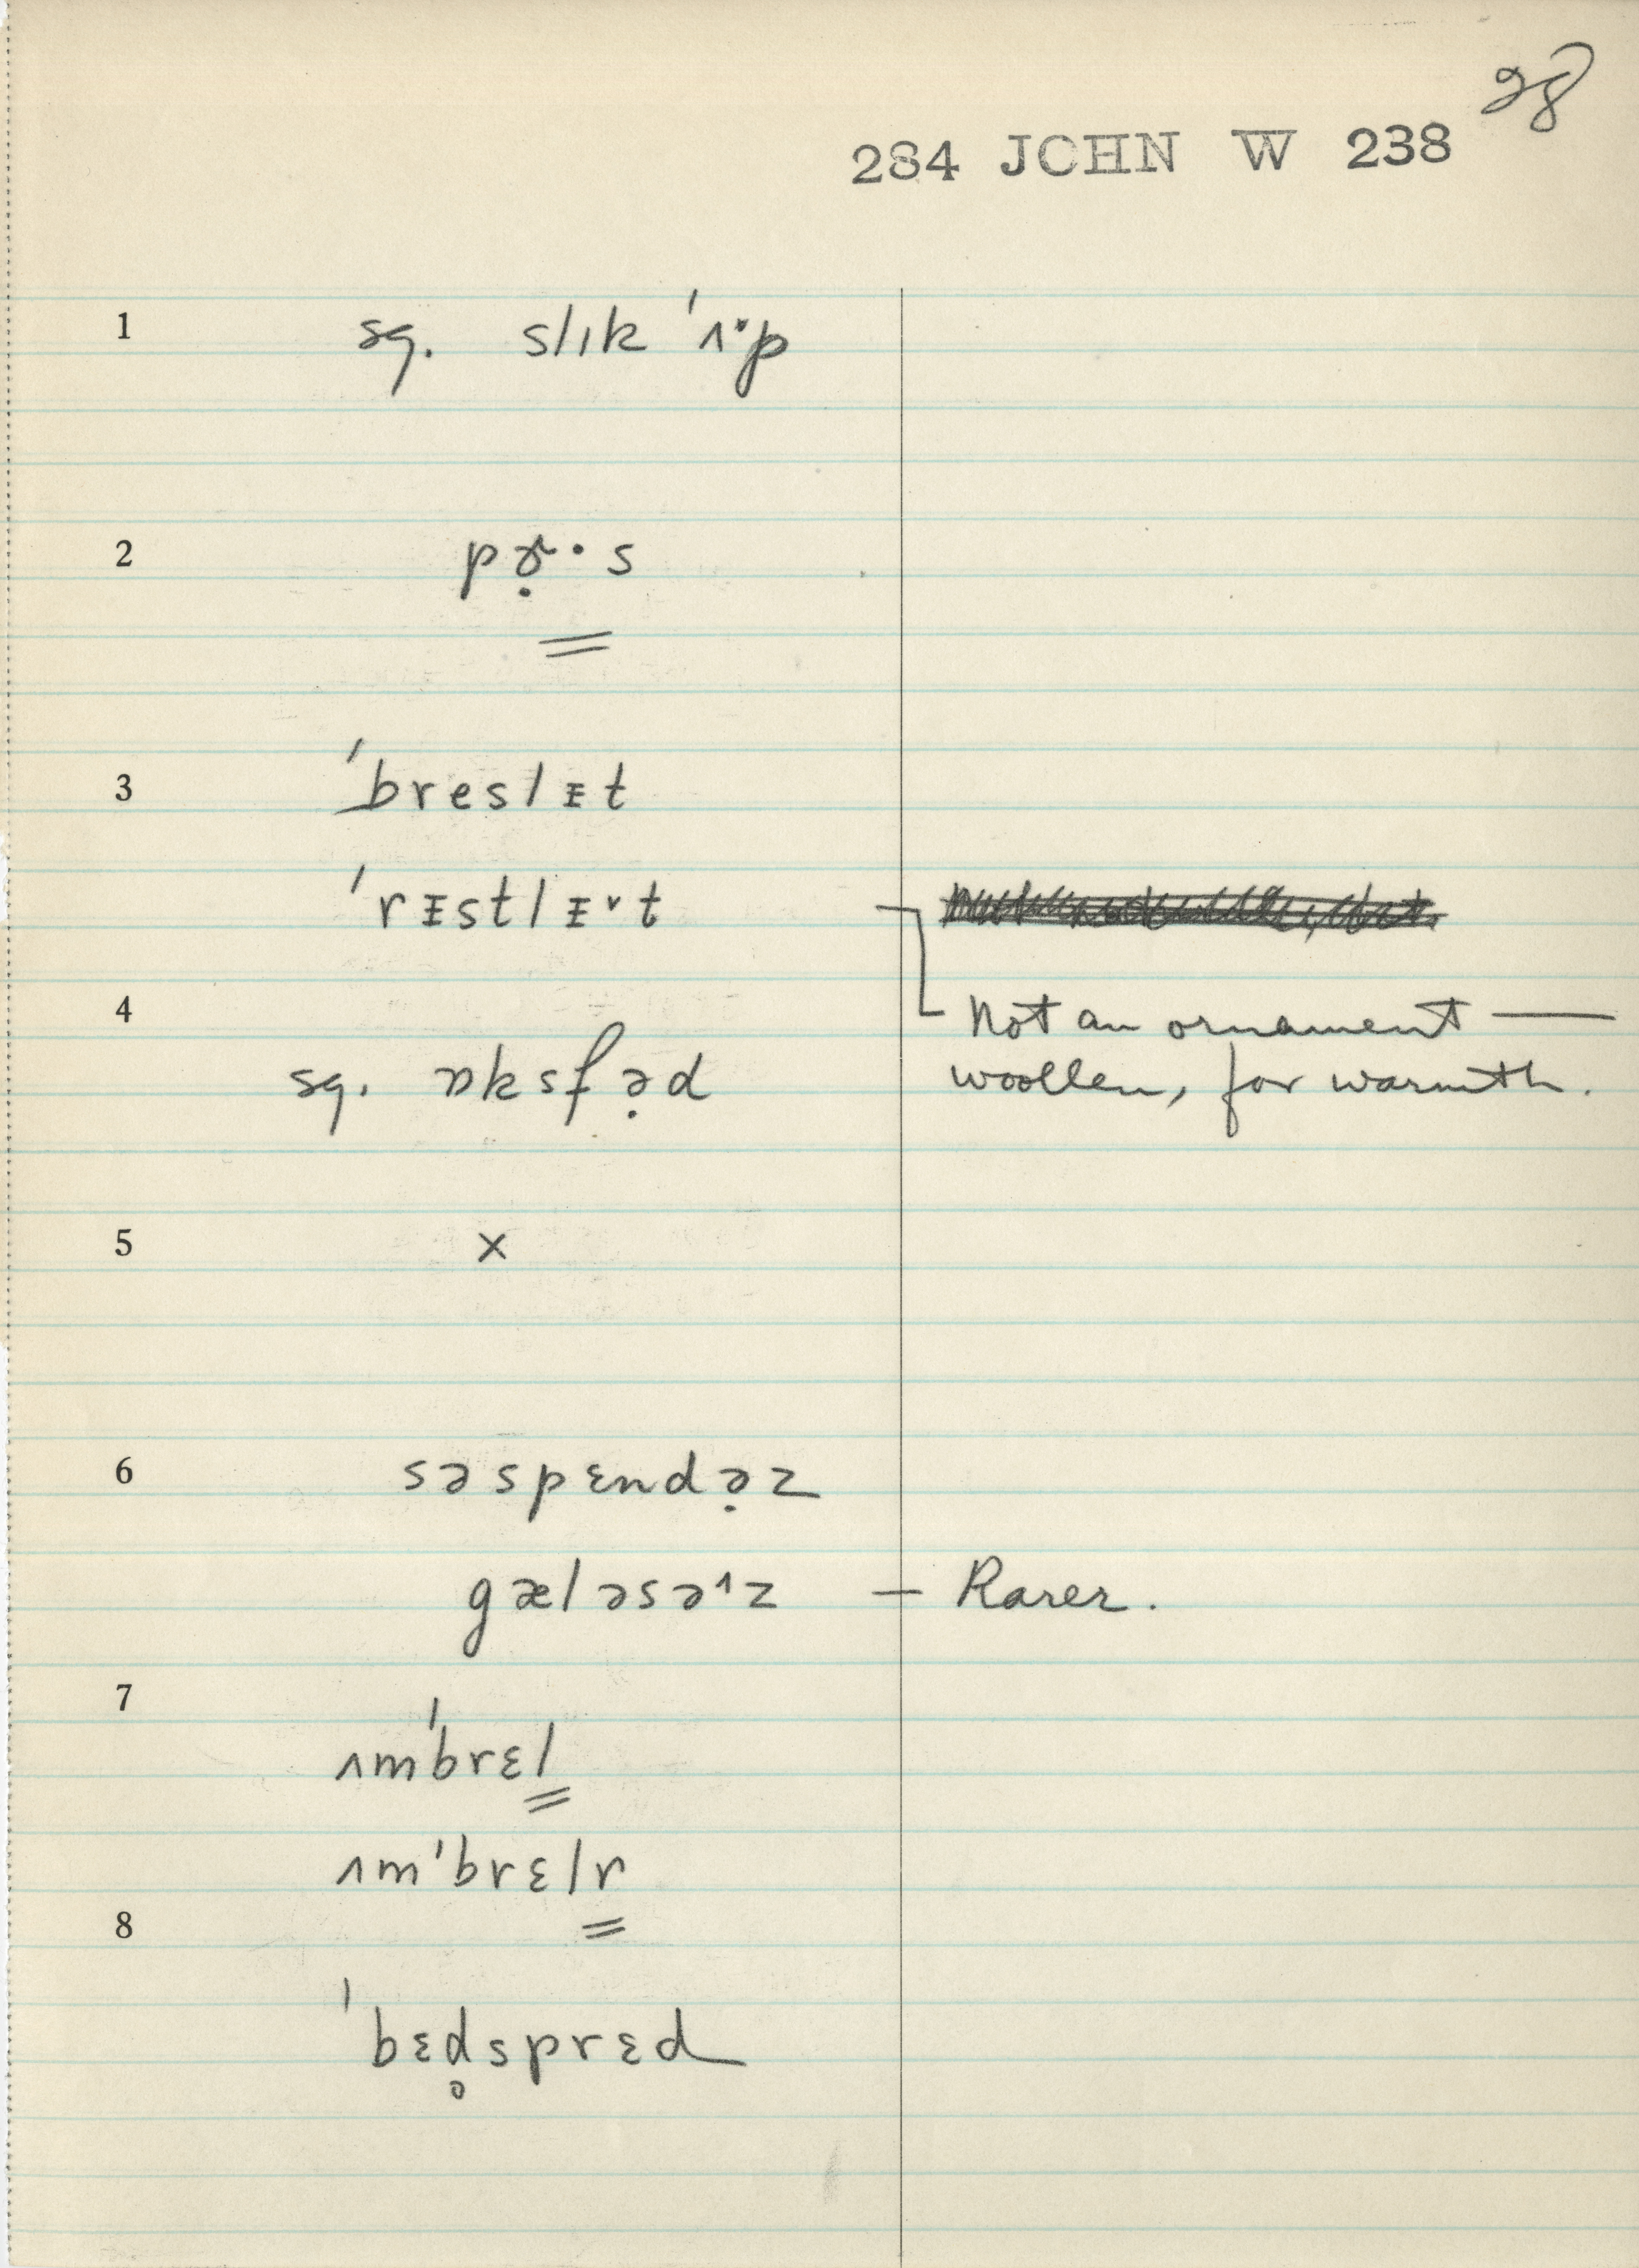 28
284 JOHN W 238
1 sg. slɪk ˈʌ̈·p
2 pɚ̣·s
3 ˈbreslᵻt
ˈrᵻstlᵻ˅t
Not an ornament —
4 sg. ɒksfə̣d
woollen, for warmth.
5 x
6 səspɛndə̣z
gæləsə˄z — Rarer.
7 ʌmˈbrɛl
ʌmˈbrɛlr
8 ˈbɛd̥sprɛd